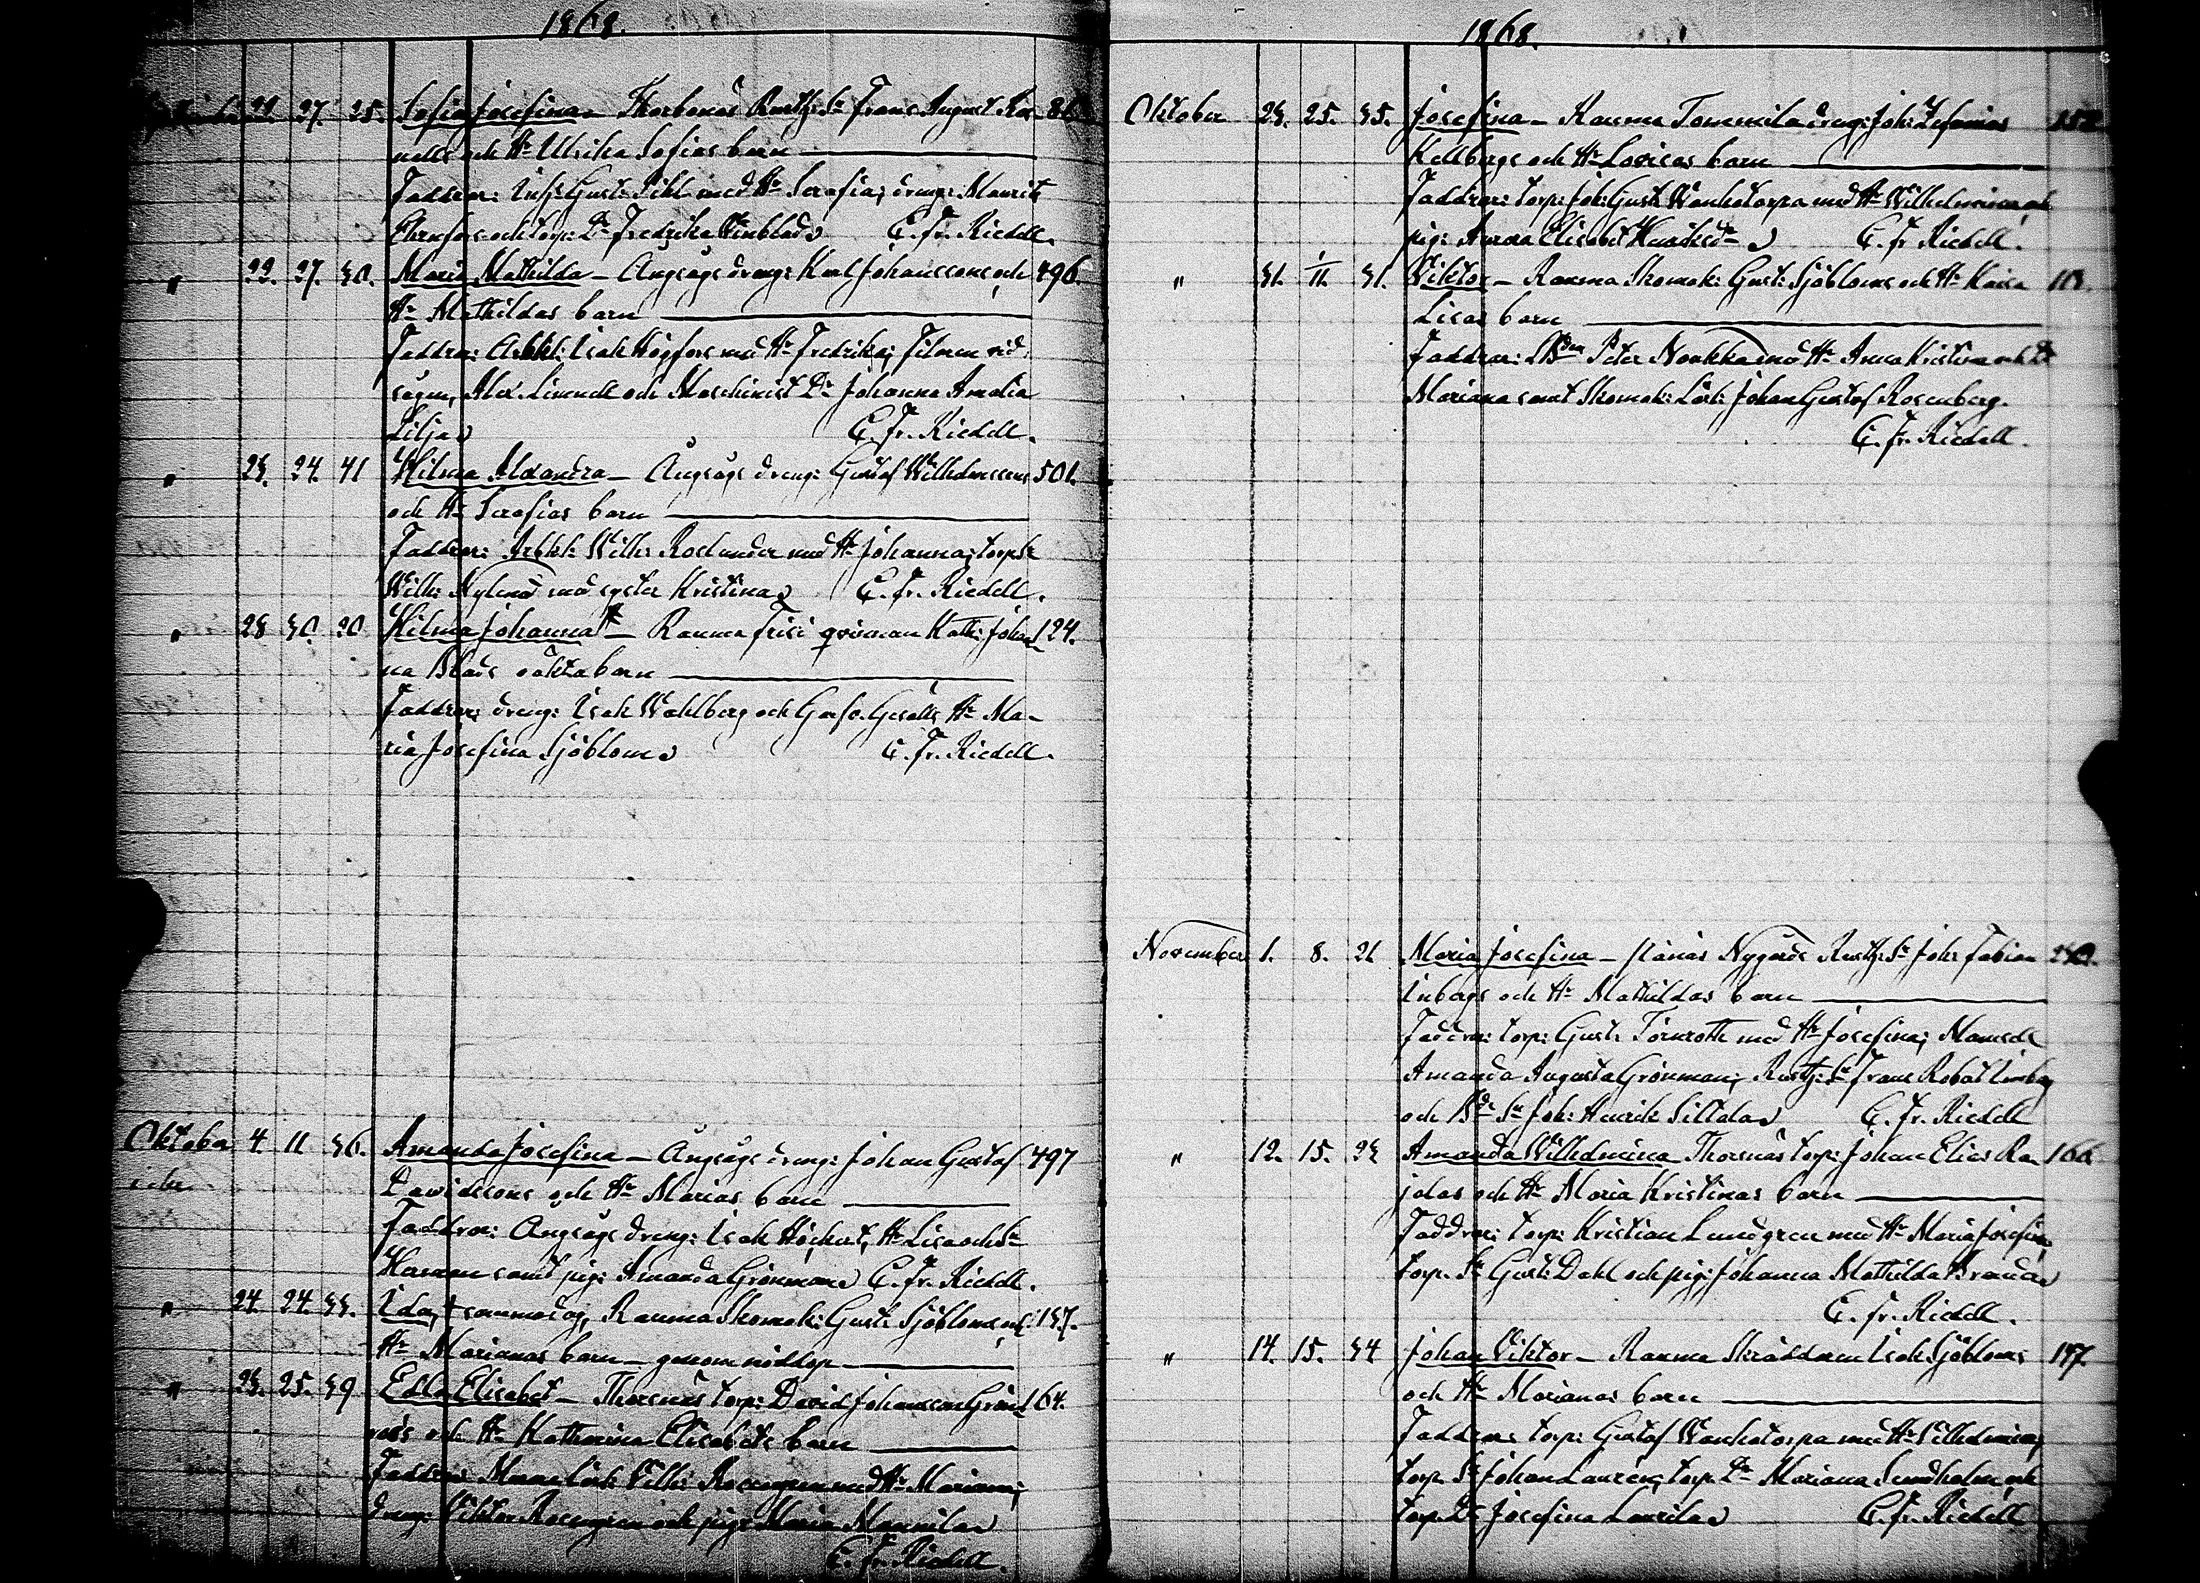 1868.
21. 27. 25. Sofia Josefina – Thorbonäs Rusth: Sn Frans August Kor- 86
nells och Hu Ulrika Sofias barn
Faddrar: Inh: Gust: Pihl med Hu Serafia; dreng: Maurits
Ehrnfors och torp: Dr Fredrika Vinblad C. Fr. Riedell.
" 22. 27. 30. Maria Mathilda – Ångsågs dreng: Karl Johanssons och 496.
Hu Mathildas barn
Faddrar: Arbkl: Isak Högfors med Hu Fredrika; Filaren vid
sågen, Alex. Linendell och Maschinist Dr Johanna Amalia
Lilja C. Fr. Riedell.
" 23. 24. 41 Hilma Alexandra – Ångsågs dreng: Gustaf Wilhelmssons 501.
och Hu Serafias barn
Faddrar: Arbkl: Wilh: Roslander med Hu Johanna; torp Sn
Wilh: Nylund med syster Kristina C. Fr. Riedell.
" 28 30. 20 Hilma Johanna – Rauma Frisi qvinnan Kath: Johan- 124.
na Blads oäkta barn
Faddrar: dreng: Isak Wahlberg och Garfv. Gesälls Hu Ma-
ria Josefina Sjöblom C. Fr. Riedell.
Oktober 4 11 36. Amanda Josefina – Ångsågs dreng: Johan Gustaf 497
Davidssons och Hu Marias barn
Faddrar: Ångsågs dreng: Isak Höckert, Hu Lisa och Sn
Herman samt pig: Amanda Grönman C. Fr. Riedell.
" 24. 24. 33. Ida, † samma dag, Rauma Skomak: Gust: Sjöbloms och 137.
Hu Marianas barn – genom nöddop
" 23. 25. 39 Edla Elisabet – Thorsnäs torp: David Johansson Grön- 164.
roos och Hu Katharina Elisabets barn
Faddrar: Murarelärl: Vilh: Rosengren med Hu Mariana;
dreng: Viktor Rosengren och pig: Maria Mannila
C. Fr. Riedell.
1868.
Oktober 23. 25. 35. Josefina – Rauma Tommila dreng: Joh: Zefanias 152
Kellbergs och Hu Lovisas barn
Faddrar: torp: Joh: Gust: Wanhatorpa med Hu Wilhelmina och
pig: Amanda Elisabet Henriksdr C. Fr. Riedell.
" 31. 1/11. 31. Viktor – Rauma Skomak: Gust: Sjöbloms och Hu Kaisa 113.
Lisas barn
Faddrar: Bden Peter Nuukka med Hu Anna Kristina och Dr
Mariana samt Skomak: Lärl: Johan Gustaf Rosenberg.
C. Fr. Riedell.
November 1. 8. 21 Maria Josefina – Nygårds Rusth: Sn Joh: Fabian
Inbergs och Hu Mathildas barn
Faddrar: torp: Gust: Törnroth med Hu Josefina; Mamsell
Amanda Augusta Grönman; Rusth: Sn Frans Robert Inberg
och Bde Sn Joh: Henrik Silldal C. Fr. Riedell
" 12. 15. 23 Amanda Wilhelmina – Thorsnäs torp: Johan Elias Ra- 166
jalas och Hu Maria Kristinas barn
Faddrar: torp: Kristian Lundgren med Hu Maria Josefina;
torp. Sn Gust: Dahl och pig: Johanna Mathilda Brander
C. Fr. Riedell.
" 14. 15. 34 Johan Viktor – Rauma Skräddaren Isak Sjöbloms 117.
och Hu Marianas barn
Faddrar: torp: Gustaf Wanhatorpa med Hu Vilhelmina;
torp. Sn Johan Laurén; torp. Dr Mariana Sundholm och
torp. Dr Josefina Laurila C. Fr. Riedell